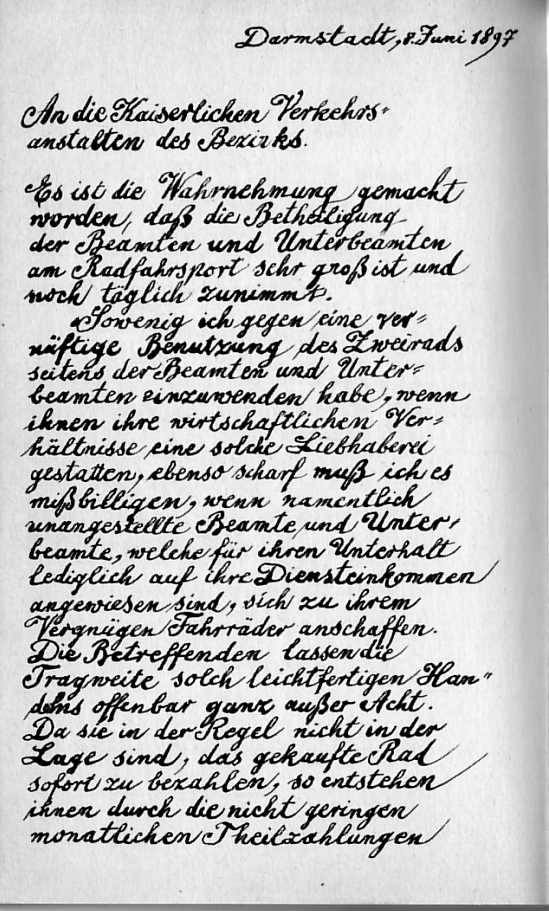 Darmstadt, 8. Juni 1897
An die Kaiserlichen Verkehrs-
anstalten des Bezirks.
Es ist die Wahrnehmung gemacht
worden, daß die Betheiligung
der Beamten und Unterbeamten
am Radfahrsport sehr groß ist und
noch täglich zunimmt.
Sowenig ich gegen eine ver=
nüftige Benutzung des Zweirads
seitens der Beamten und Unter=
beamten einzuwenden habe, wenn
ihnen ihre wirtschaftlichen Ver=
hältnisse eine solche Liebhaberei
gestatten, ebenso scharf muß ich es
mißbilligen, wenn namentlich
unangestellte Beamte und Unter=
beamte, welche für ihren Unterhalt
lediglich auf ihre Diensteinkommen
angewiesen sind, sich zu ihrem
Vergnügen Fahrräder anschaffen.
Die Betreffenden lassen die
Tragweite solch leichtfertigen Han=
delns offenbar ganz außer Acht.
Da sie in der Regel nicht in der
Lage sind, das gekaufte Rad
sofort zu bezahlen, so entstehen
ihnen durch die nicht geringen
monatlichen Theilzahlungen